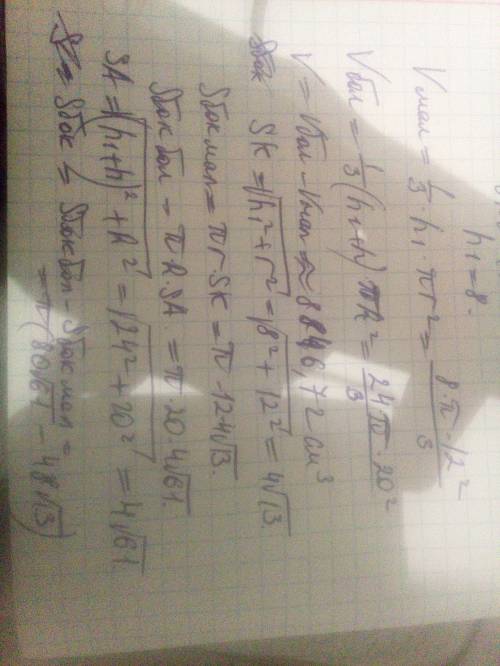 h₁ = 8.
Vмал = 1/3 · h₁ · πr² = 8·π·12²/3
Vбол = 1/3 (h₁+h) πR² = 24π·20²/3
V = Vбол - Vмал ≈ 8846,72 см³
Sбок SK = √h₁²+r² = √8²+12² = 4√13.
Sбок мал = πr·SK = π·124√13.
Sбок бол = πR·SA = π·20·4√61.
SA = √(h₁+h)²+R² = √24²+20² = 4√61.
Sбок = Sбок бол - Sбок мал =
= π(80√61 - 48√13)